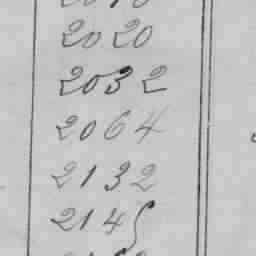 2020
2032
2064
2132
2145